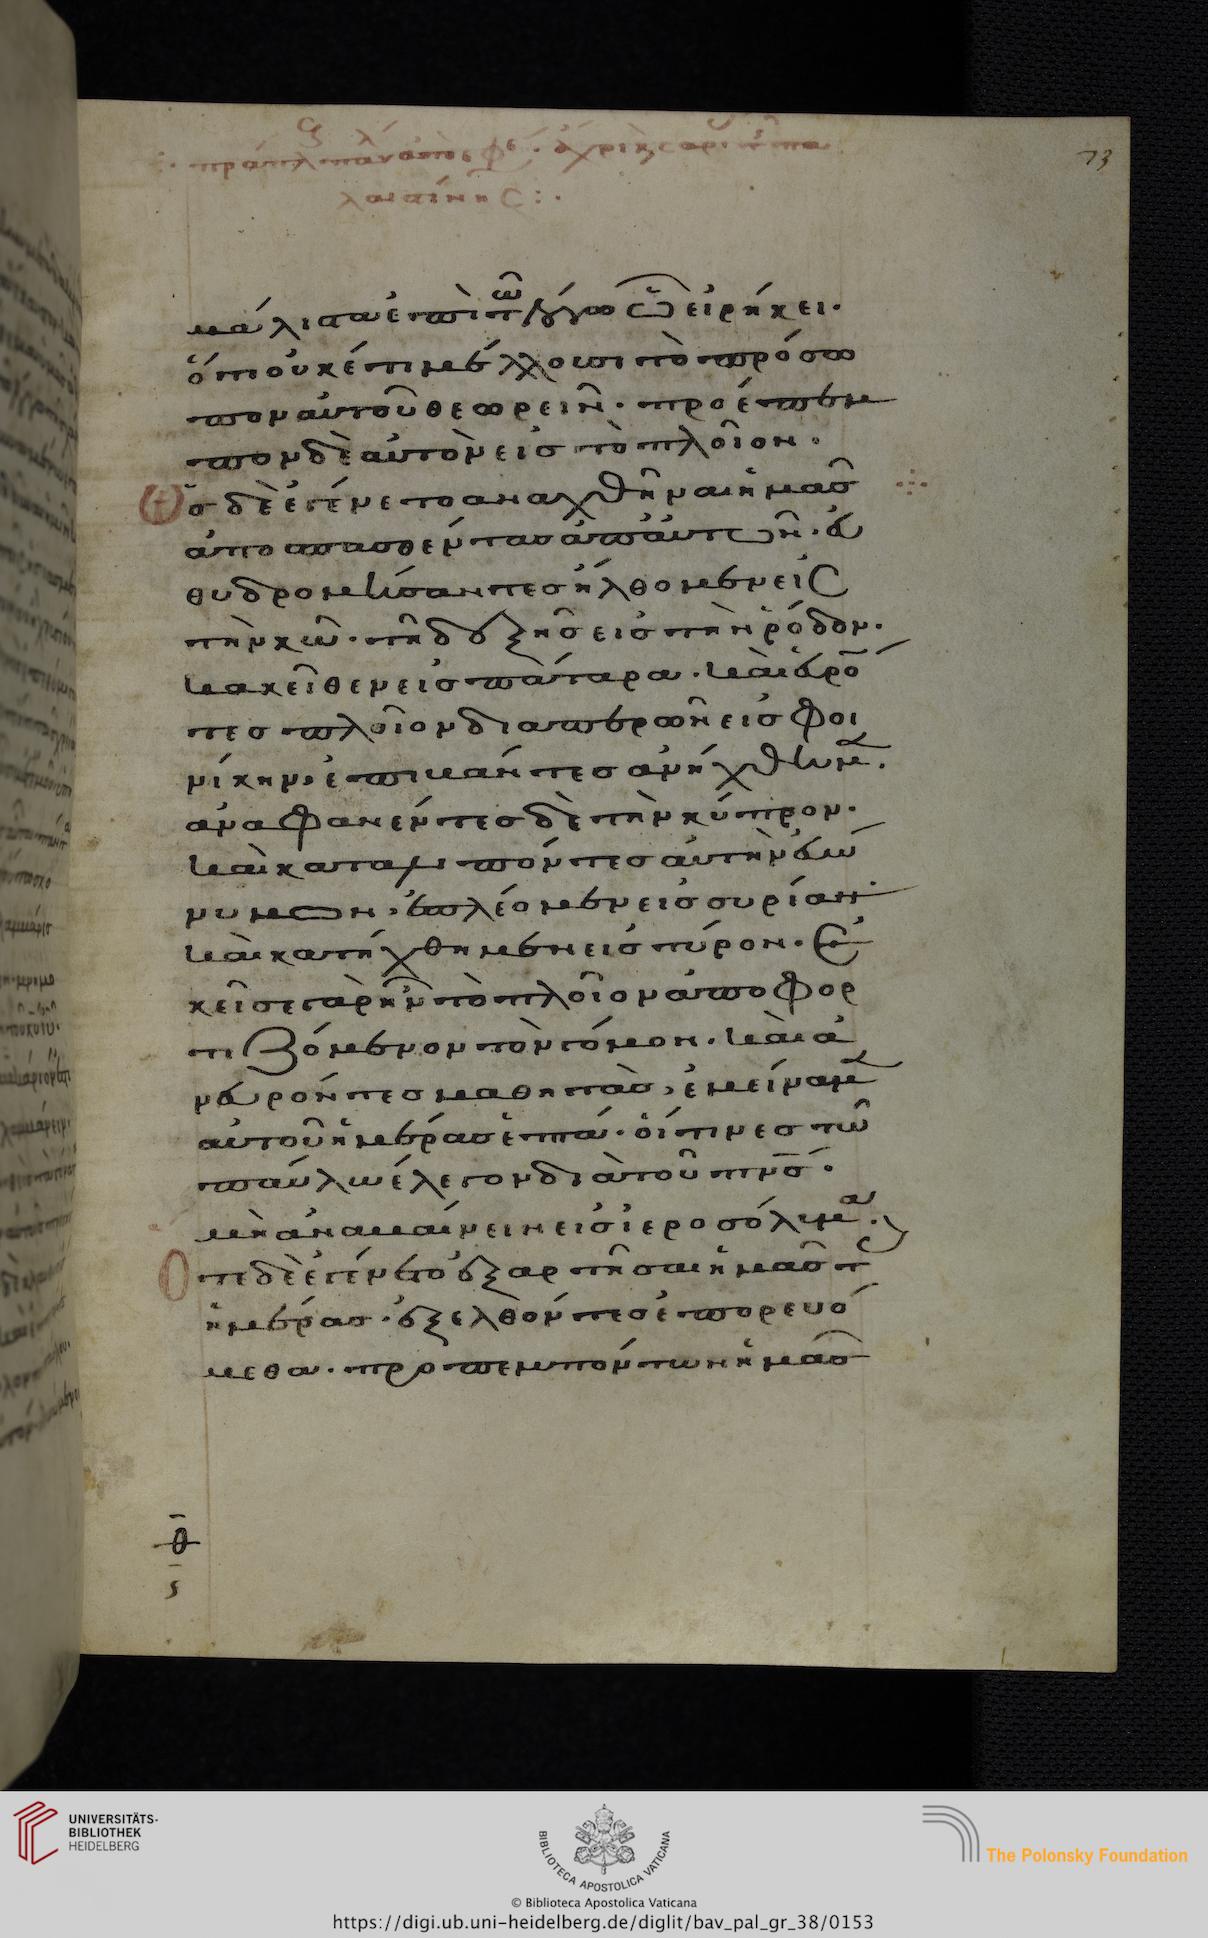 73
μάλιστα ἐπὶ τῶ λόγω ὧ εἰρήκει·
ὅτι οὐκέτι μέλλουσι τὸ πρόσω
πον αὐτοῦ θεωρεῖν· προέπεμ
πον δὲ αὐτὸν εἰς τὸ πλοῖον·
Ὡς δὲ ἐγένετο ἀναχθῆναι ἡμᾶς
ἀποσπασθέντας ἀπ' αὐτῶν· εὐ
θυδρομήσαντες ἤλθομεν εἰς
τὴν κῶ· τῆ δ' ἑξῆς εἰς τὴν ῥόδον·
κακεῖθεν εἰς πάταρα· καὶ εὑρό
τες πλοῖον διαπερῶν εἰς φοι
νίκην, ἐπιβάντες ἀνήχθημεν·
ἀναφανέντες δὲ τὴν κύπρον·
καὶ καταλιπόντες αὐτὴν εὐώ
νυμον, ἐπλέομεν εἰς συρίαν·
καὶ κατήχθημεν εἰς τύρον· ἐ
κεῖσε γὰρ ἦν τὸ πλοῖον ἀποφορ
τιζόμενον τὸν γόμον· καὶ ἀ
νευρόντες μαθητὰς, ἐμείναμεν
αὐτοῦ ἡμέρας ἑπτά· οἵτινες τῶ
παύλω ἔλεγον διὰ τοῦ πν̅ς·
μὴ ἀναβαίνειν εἰς ἱεροσόλυμα·
Ὅτε δὲ ἐγένετο ἐξαρτῆσαι ἡμᾶς τὰς
ἡμέρας· ἐξελθόντες ἐπορευό
μεθα· προπεμπόντων ἡμᾶς
θ
ς
UNIVERSITÄTS-
BIBLIOTHEK
HEIDELBERG
BIBLIOTECA APOSTOLICA VATICANA
The Polonsky Foundation
© Biblioteca Apostolica Vaticana
https://digi.ub.uni-heidelberg.de/diglit/bav_pal_gr_38/0153